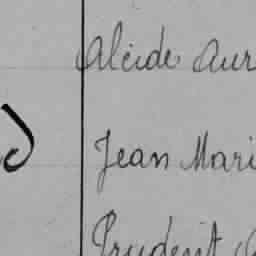 Alcide Aur
Jean Mari
Prudent